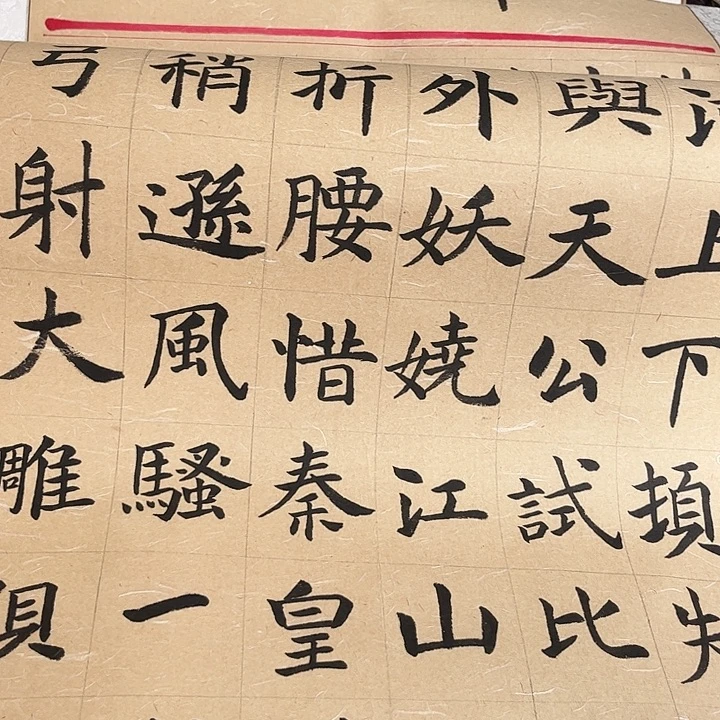 河上下頓失
與天公試比
外妖嬈江山
折腰惜秦皇
稍遜風騷一
弓射大雕俱